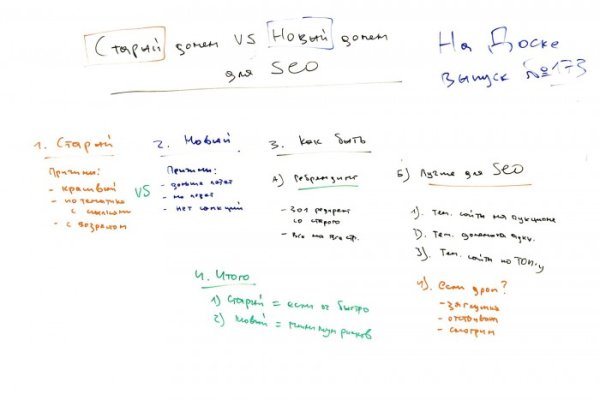 Старый домен VS Новый домен
для SEO
На Доске
выпуск №173
1. Старый
Причины:
- красивый
- по тематике
с ссылками
- с возрастом
VS
2. Новый
Причины:
- дольше
- не
- нет санкций
3. Как быть
А) Ребрендинг
- 301 редирект
со старого
- все на все стр.
Б) Лучше для SEO
1). Тем. сайты на аукционе
2). Тем. домены
3). Тем. сайты по ТОП-у
4). Если дроп?
- заглушка
- отстоять
- смотрим
4. Итого
1) Старый = если оч быстро
2) Новый = минимум рисков